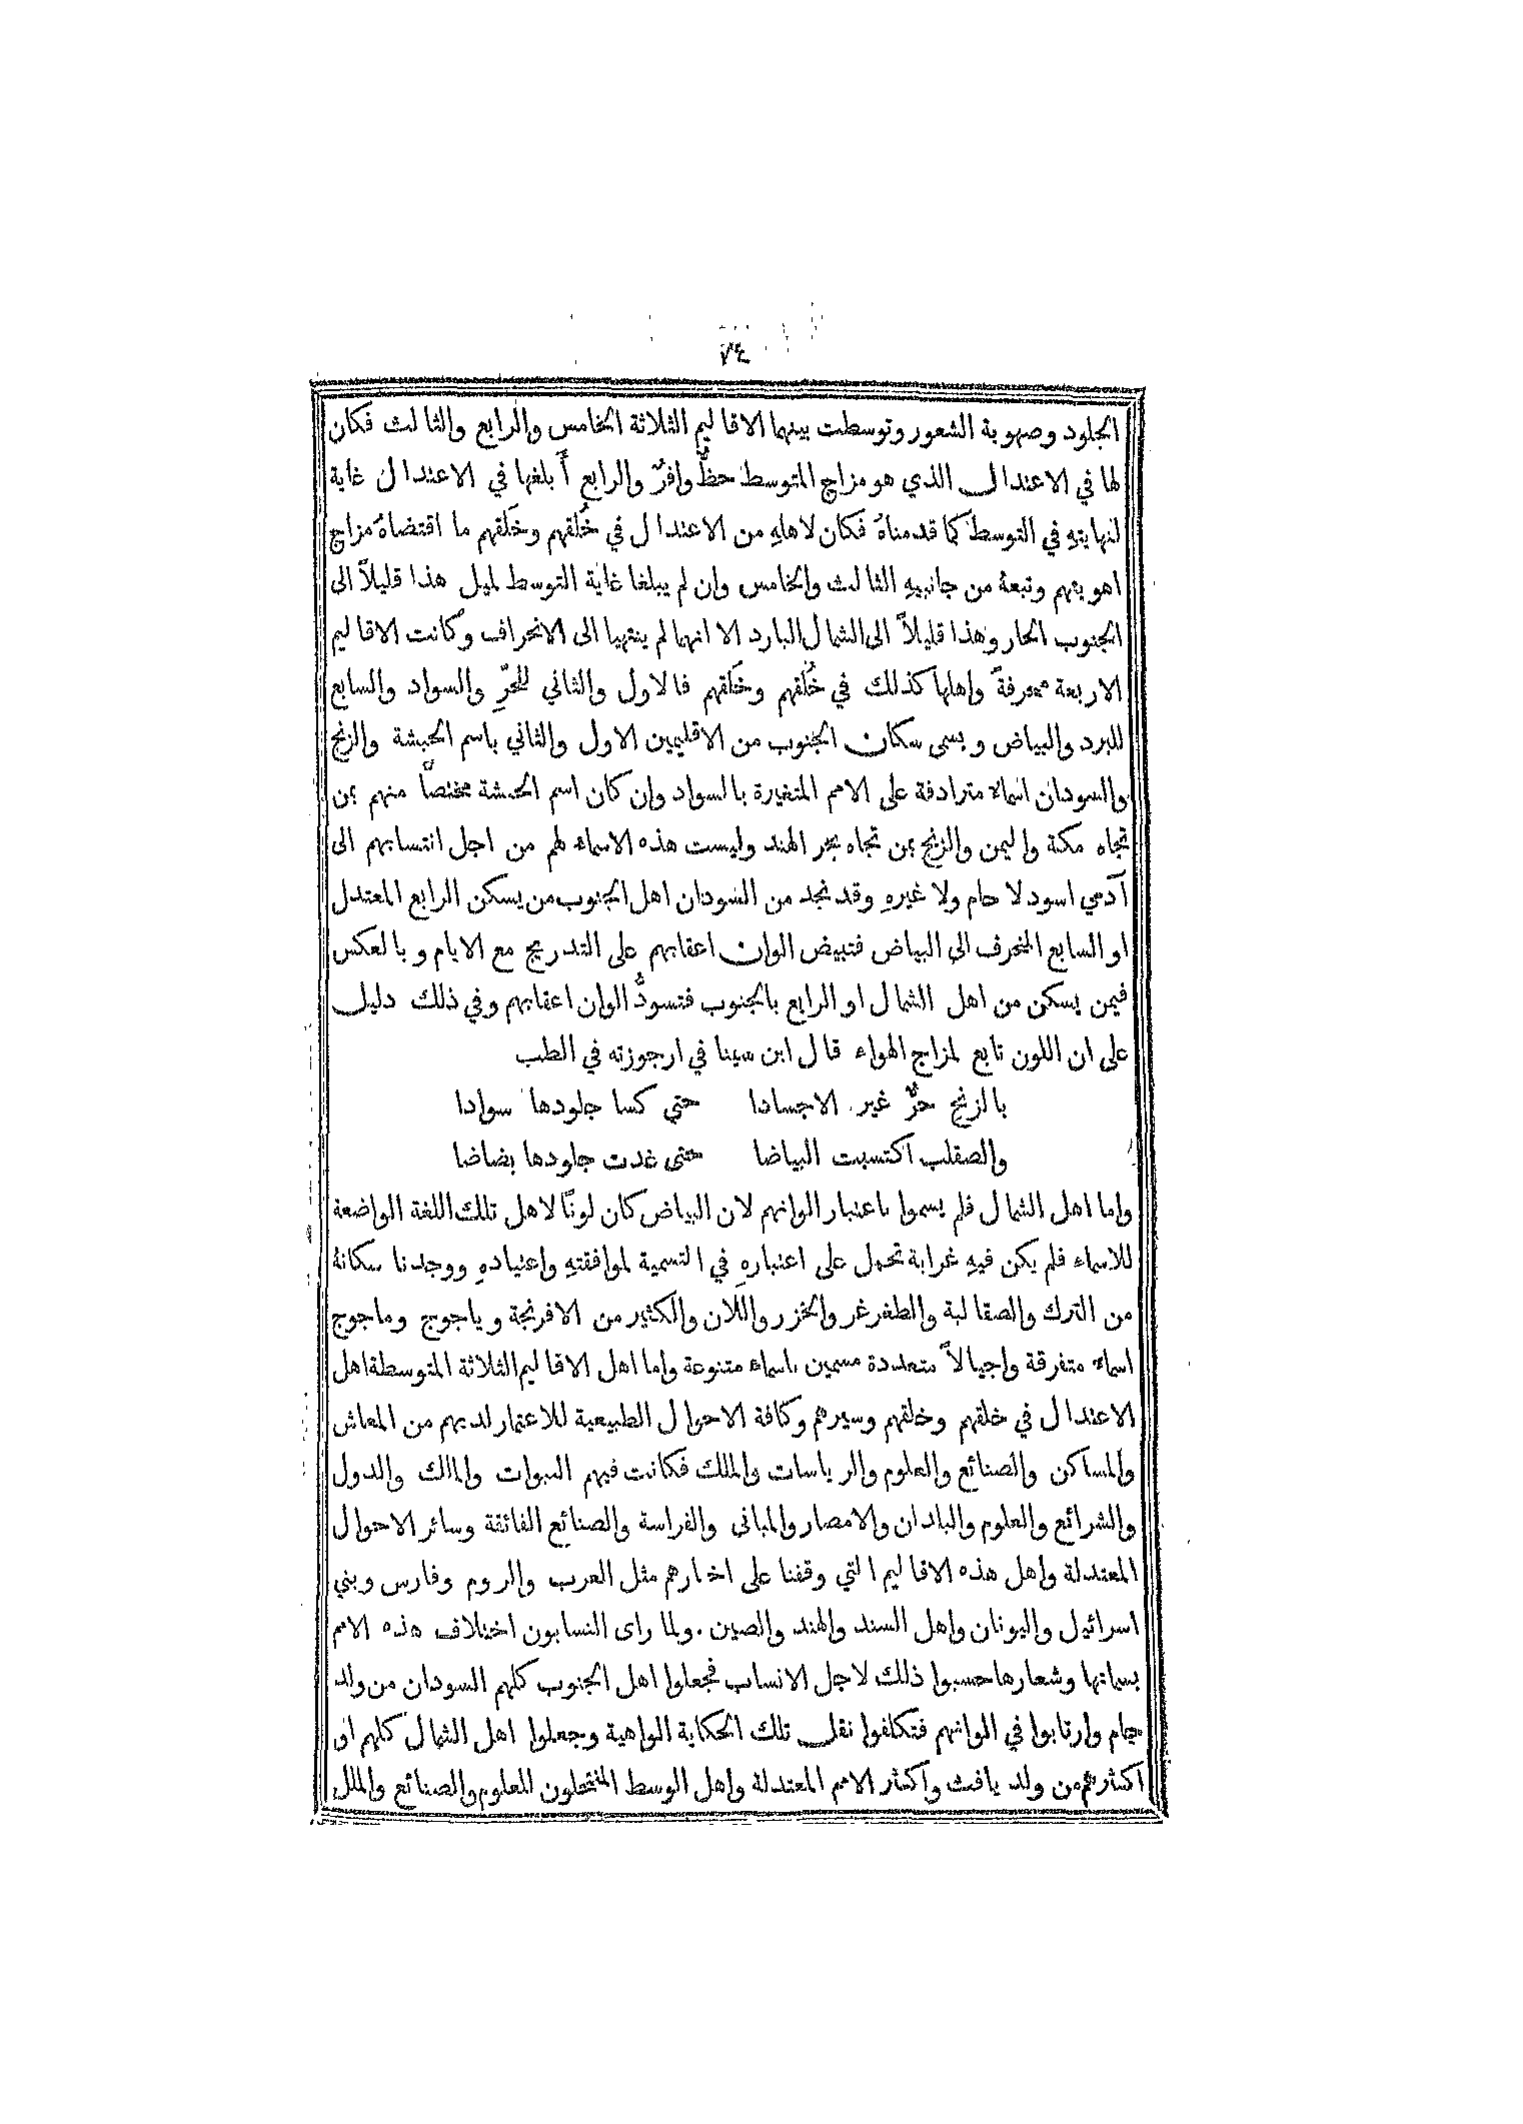 ٧٤
الجلود وصهوبة الشعور وتوسطت بينهما الاقاليم الثلاثة الخامس والرابع والثالث فكان
لها في الاعتدال الذي هو مزاج المتوسط حظٌّ وافرٌ والرابع أَبلغها في الاعتدال غاية
لنهايتهِ في التوسط كما قدمناهُ فكان لاهلهِ من الاعتدال في خُلقهم وخَلقهم ما اقتضاهُ مزاج
اهويتهم وتبعهُ من جانبيهِ الثالث والخامس وان لم يبلغا غاية التوسط لميل هذا قليلاً الى
الجنوب الحار وهذا قليلاً الى الشمال البارد الا انهما لم ينتهيا الى الانحراف وكانت الاقاليم
الاربعة منحرفةً واهلها كذلك في خُلقهم وخَلقهم فالاول والثاني للحرِّ والسواد والسابع
للبرد والبياض ويسمى سكان الجنوب من الاقليمين الاول والثاني باسم الحبشة والزنج
والسودان اسماءٌ مترادفة على الامم المتغيرة بالسواد وان كان اسم الحبشة مختصاً منهم بمن
تجاه مكة واليمن والزنج بمن تجاه بحر الهند وليست هذه الاسماء لهم من اجل انتسابهم الى
آدمي اسود لا حام ولا غيرهِ وقد نجد من السودان اهل الجنوب من يسكن الرابع المعتدل
او السابع المنحرف الى البياض فتبيض الوان اعقابهم على التدريج مع الايام وبالعكس
فيمن يسكن من اهل الشمال او الرابع بالجنوب فتسودُّ الوان اعقابهم وفي ذلك دليل
على ان اللون تابع لمزاج الهواء قال ابن سينا في ارجوزته في الطب
بالزنج حرٌّ غير الاجسادا حتى كسا جلودها سوادا
والصقلب اكتسبت البياضا حتى غدت جلودها بضاضا
واما اهل الشمال فلم يسموا باعتبار الوانهم لان البياض كان لونًا لاهل تلك اللغة الواضعة
للاسماء فلم يكن فيهِ غرابة تحمل على اعتبارهِ في التسمية لموافقتهِ واعتيادهِ ووجدنا سكانهُ
من الترك والصقالبة والطغرغر والخزر واللان والكثير من الافرنجة وياجوج وماجوج
اسماءً متفرقة واجيالاً متعددة مسمين باسماء متنوعة واما اهل الاقاليم الثلاثة المتوسطة اهل
الاعتدال في خلقهم وخلقهم وسيرهم وكافة الاحوال الطبيعية للاعتمار لديهم من المعاش
والمساكن والصنائع والعلوم والرياسات والملك فكانت فيهم النبوات والمالك والدول
والشرائع والعلوم والبلدان والامصار والمباني والفراسة والصنائع الفائقة وسائر الاحوال
المعتدلة واهل هذه الاقاليم التي وقفنا على اخبارهم مثل العرب والروم وفارس وبني
اسرائيل واليونان واهل السند والهند والصين . ولما راى النسابون اختلاف هذه الامم
بسماتها وشعارها حسبوا ذلك لاجل الانساب فجعلوا اهل الجنوب كلهم السودان من ولد
حام وارتابوا في الوانهم فتكلفوا نقل تلك الحكاية الواهية وجعلوا اهل الشمال كلهم او
اكثرهم من ولد يافث واكثر الامم المعتدلة واهل الوسط المنتحلون للعلوم والصنائع والملل